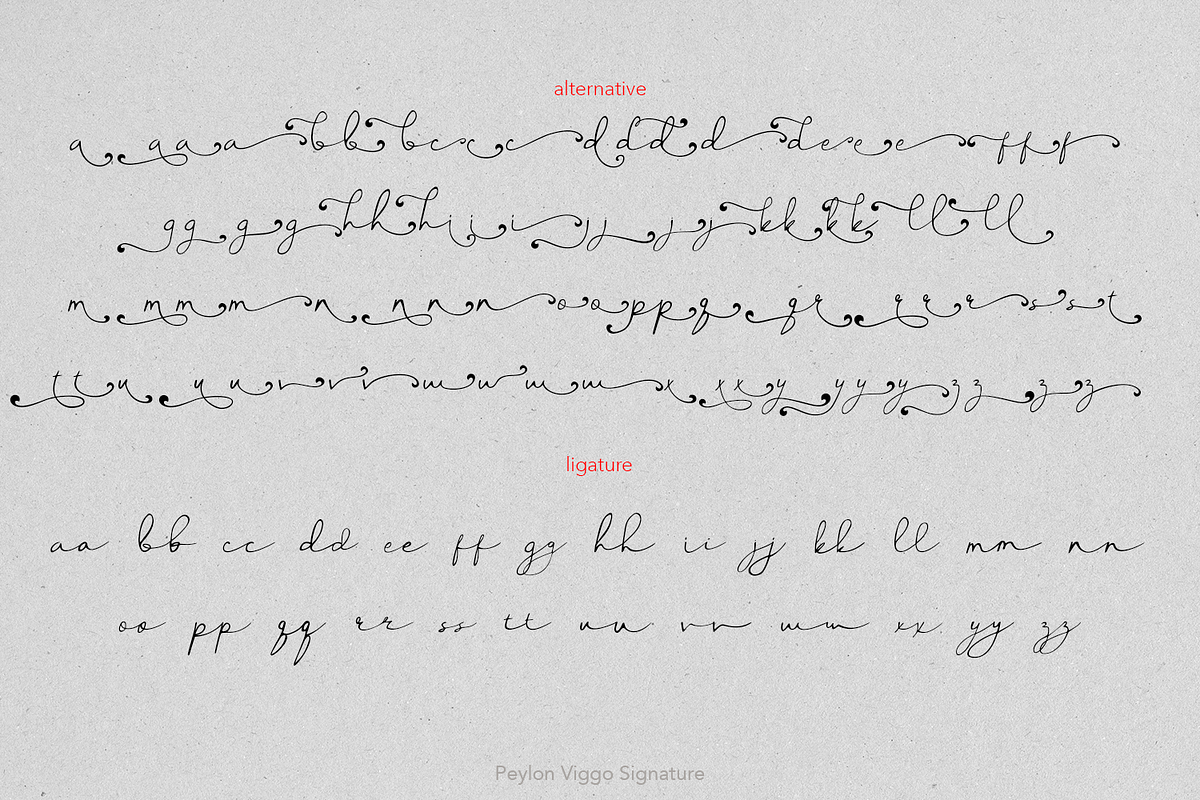 alternative
a a a a b b b c c c d d d d d e e e f f f
g g g g h h h i i i j j j j k k k k l l l l
m m m m n n n n o o p p q q r r r r s s t
t t u u u v v v w w w w x x x y y y y z z z z
ligature
aa bb cc dd ee ff gg hh ii jj kk ll mm nn
oo pp qq rr ss tt uu vv ww xx yy zz
Peylon Viggo Signature